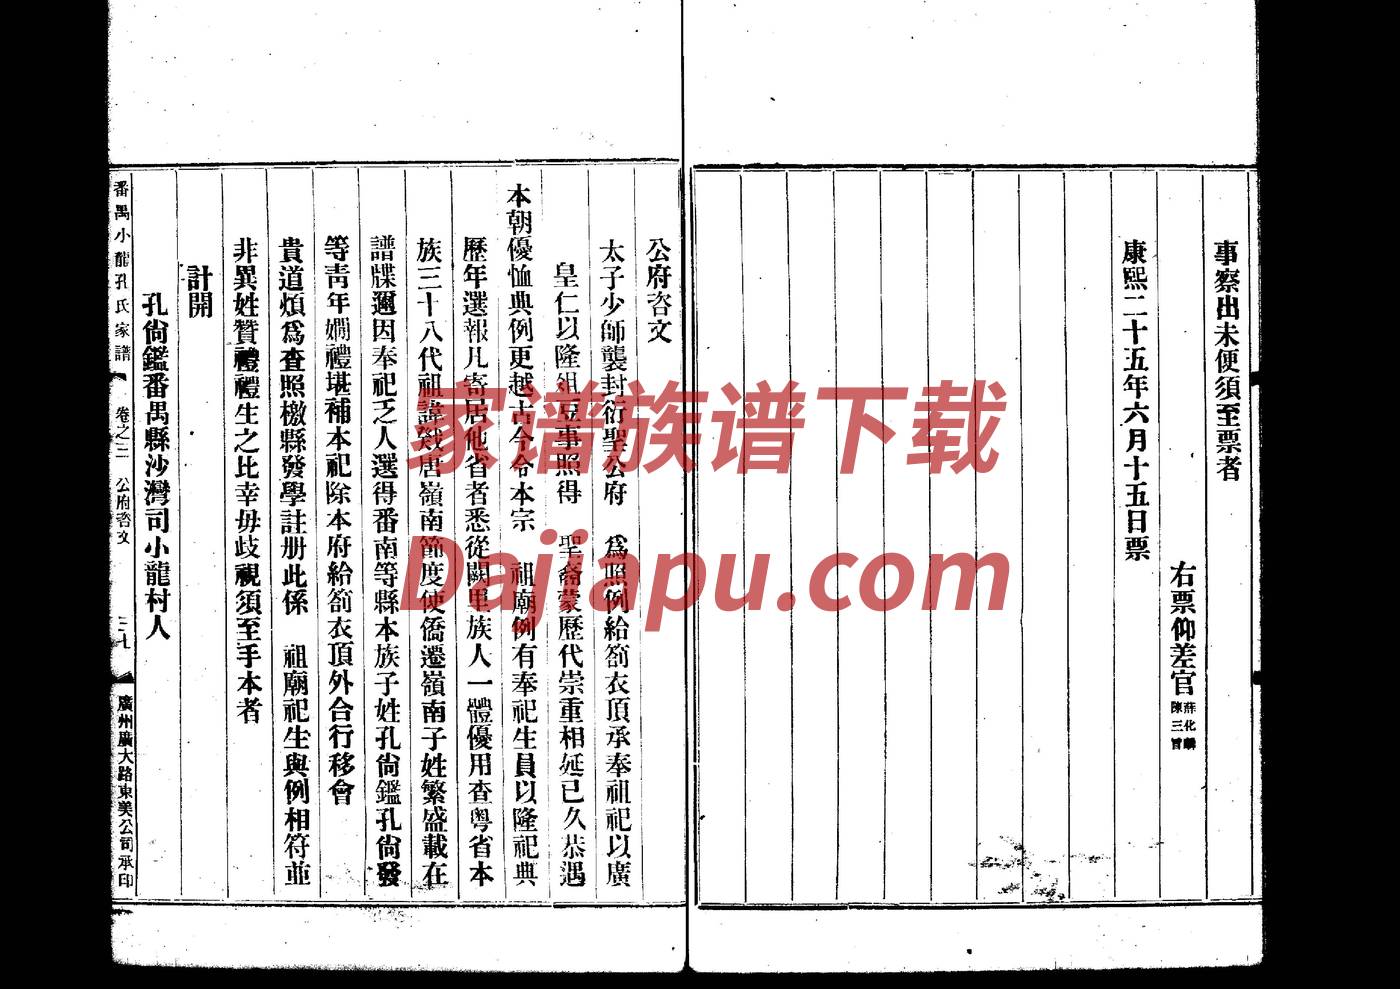 事察出未便須至票者
右票仰差官
薛化麟
陳三
康熙二十五年六月十五日票
公府咨文
太子少師襲封衍聖公府 爲照例給箚衣頂承奉祖祀以廣
皇仁以隆俎豆事照得 聖裔蒙歷代崇重相延已久恭遇
本朝優恤典例更越古今令本宗 祖廟例有奉祀生員以隆祀典
歷年選報凡寄居他省者悉從闕里族人一體優用查粤省本
族三十八代祖諱戣唐嶺南節度使僑遷嶺南子姓繁盛載在
譜牒邇因奉祀乏人選得番南等縣本族子姓孔尙鑑孔尙發
等靑年嫺禮堪補本祀除本府給箚衣頂外合行移會
貴道煩爲查照檄縣發學註册此係 祖廟祀生與例相符並
非異姓贊禮禮生之比幸毋歧視須至手本者
計開
孔尙鑑番禺縣沙灣司小龍村人
番禺小龍孔氏家譜 卷之三 公府咨文 三十
廣州廣大路東美公司承印
家谱族谱下载
Dajiapu.com